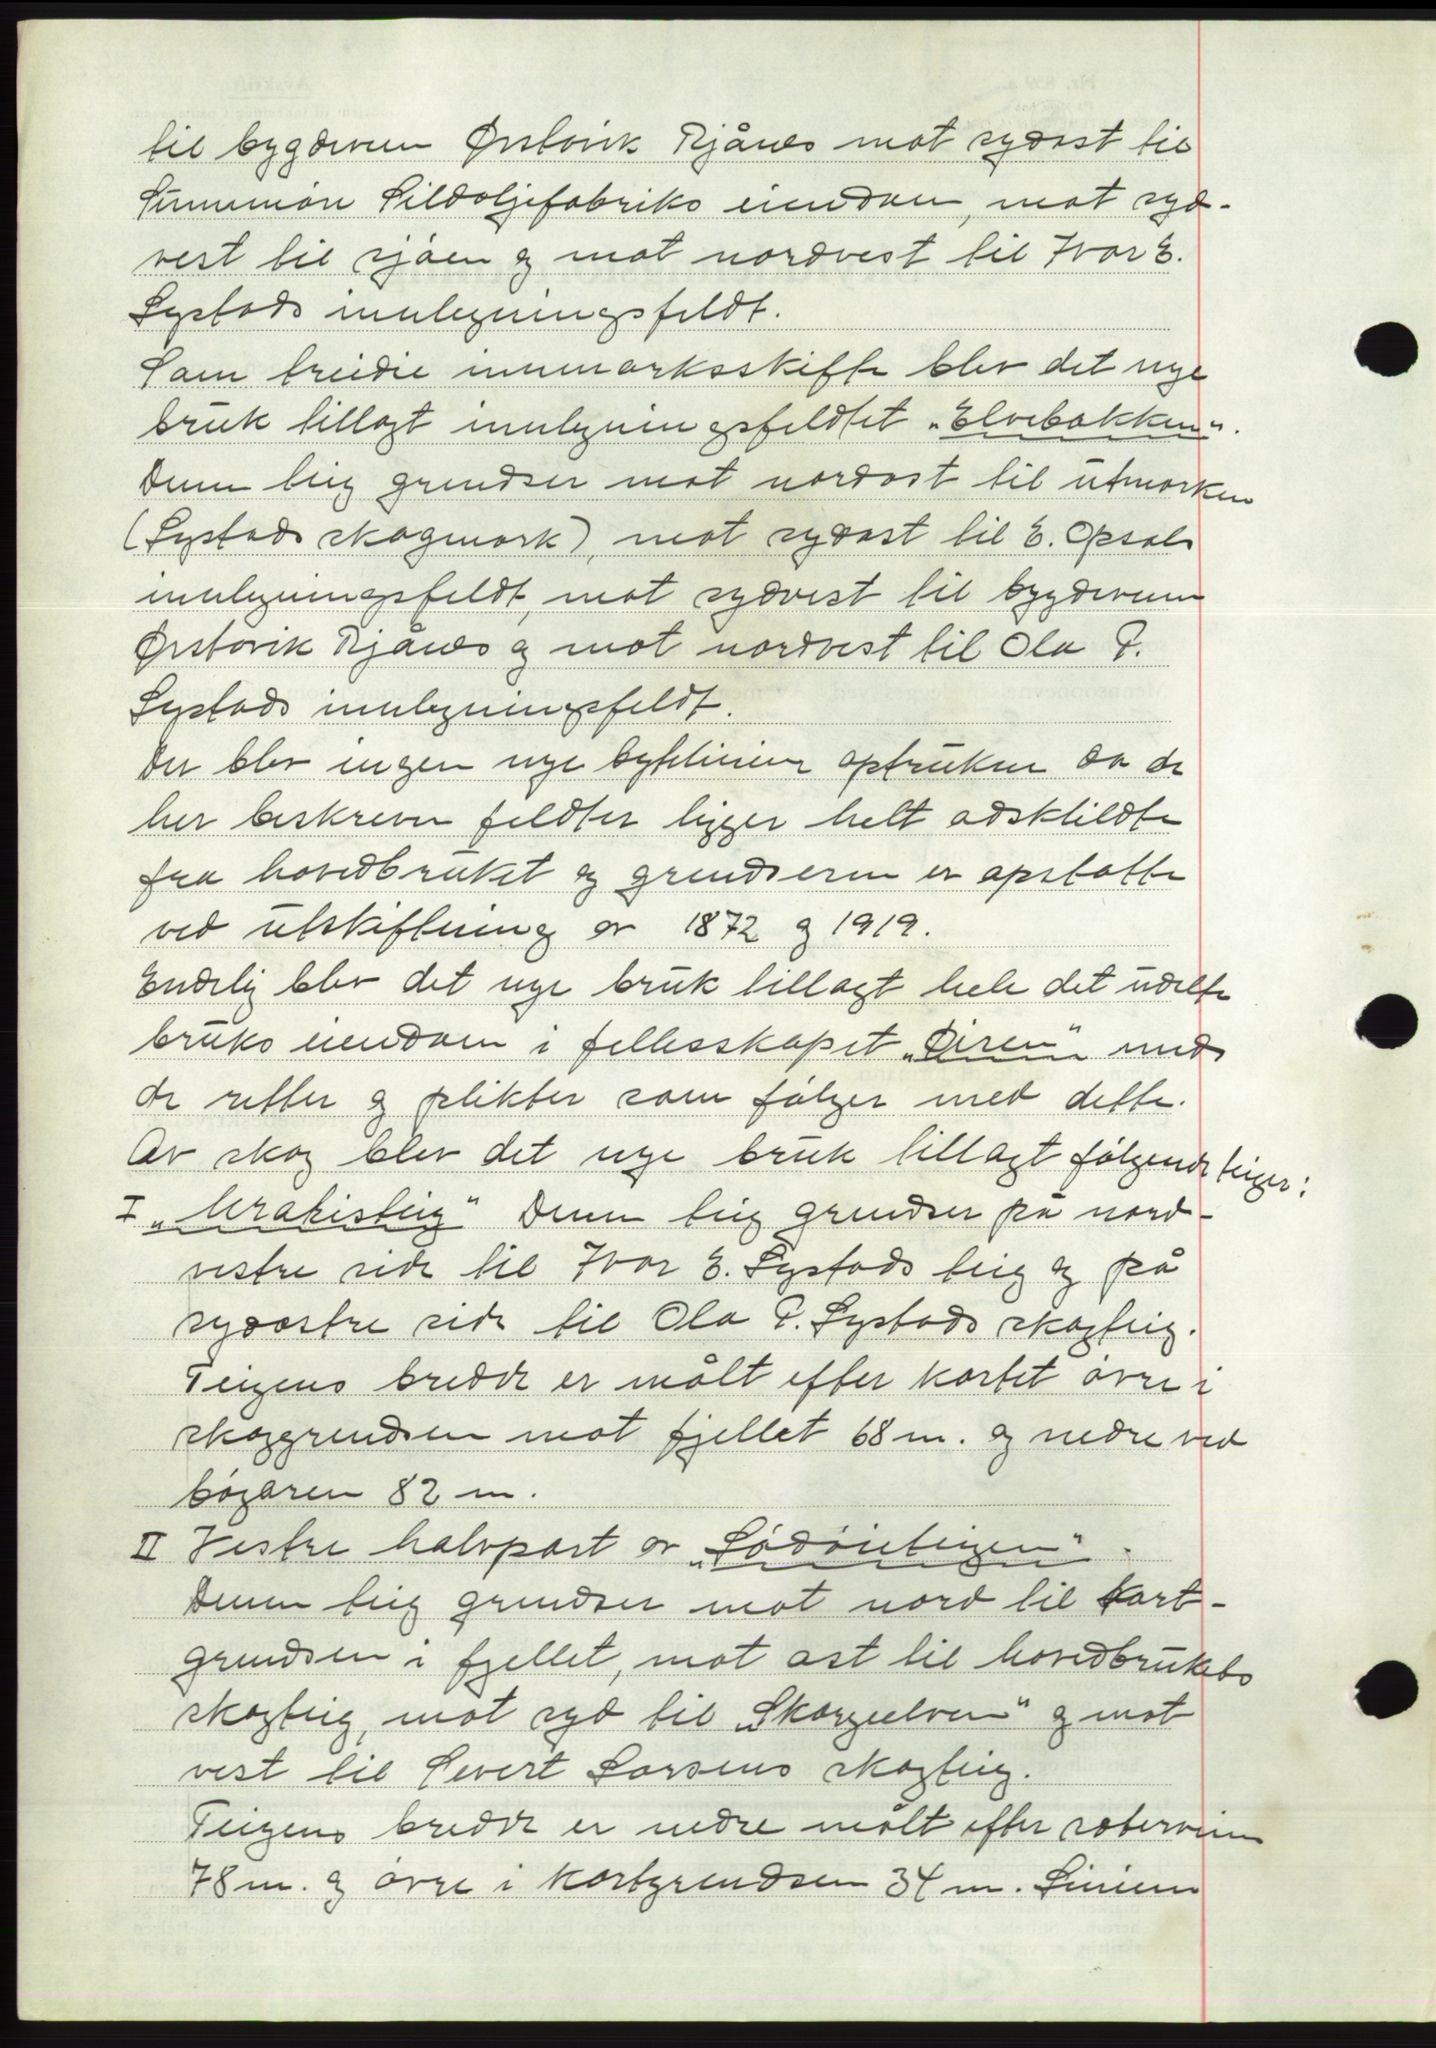 til bygdeveien Ørstavik Rjånes mot sydost til
Sunnmøre Sildoljefabriks eiendom, mot syd-
vest til sjøen og mot nordvest til Ivar E.
Systads innlegningsfeldt.
Som tredie innmarksskifte blev det nye
bruk tillagt innlegningsfeldtet "Elvebakken".
Denne teig grendser mot nordost til utmarken
(Systads skogmark), mot sydost til E. Opsals
innlegningsfeldt, mot sydvest til bygdeveien
Ørstavik Rjånes og mot nordvest til Ola P.
Systads innlegningsfeldt.
Der blev ingen nye bytelinier optrukne da de
her beskrevne feldter ligger helt adskildte
fra hovedbruket og grendserne er opstatte
ved utskiftning av 1872 og 1919.
Endelig blev det nye bruk tillagt hele det udelte
bruks eiendom i fellesskapet "Øiren" med
de retter og plikter som følger med dette.
Av skog blev det nye bruk tillagt følgende teiger:
I "Urakisteig" Denne teig grendser på nord-
vestre side til Ivar E. Systads teig og på
sydostre side til Ola P. Systads skogteig.
Teigens bredde er målt efter kartet øvre i
skoggrendsen mot fjellet 68 m. og nedre ved
bøgaren 82 m.
II Vestre halvpart av "Sødøieteigen".
Denne teig grendser mot nord til kart-
grendsen i fjellet, mot ost til hovedbrukets
skogteig, mot syd til "Skorgeelven" og mot
vest til Severt Larsens skogteig.
Teigens bredde er nedre målt efter sæterveien
78 m. og øvre i kartgrendsen 34 m. Linien